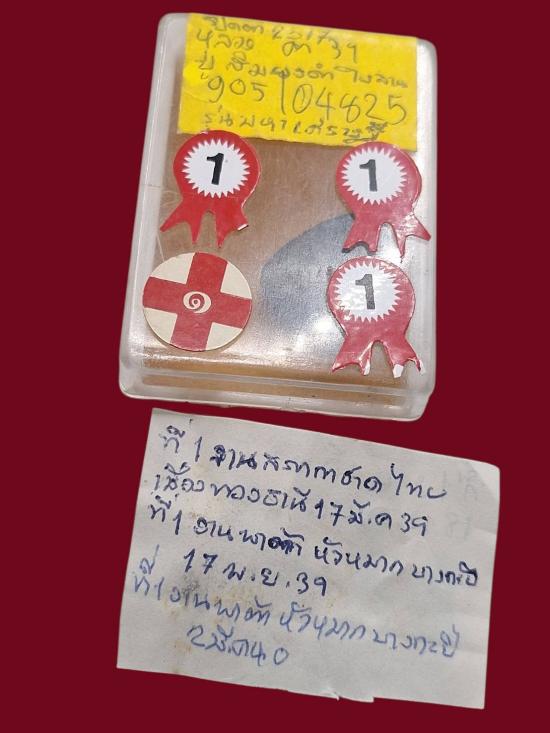 ปิดตา 2517
หลวง ตา 39
ปู่ สิมพะลี
905 104825
รุ่นมหาเศรษฐี
1
1
๑
1
ที่ 1 งานสภากาชาดไทย
เมืองทองธานี 17 มี.ค 39
ที่ 1 งานพาต้า หัวหมาก บางกะปิ
17 พ.ย. 39
ที่ 1 งานพาต้า หัวหมาก บางกะปิ